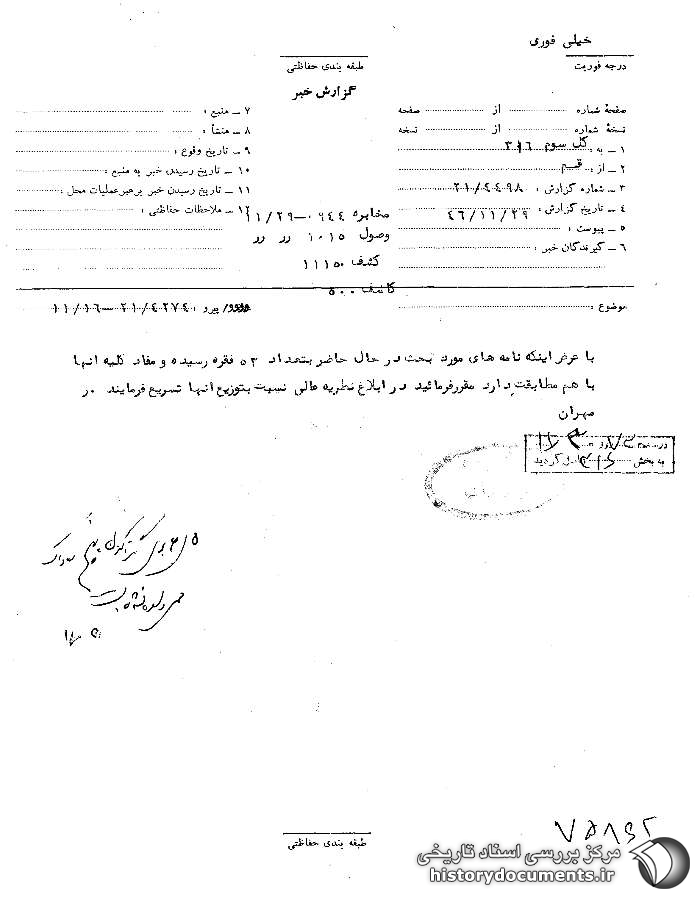 خیلی فوری
درجه فوریت
طبقه بندی حفاظتی
گزارش خبر
صفحهٔ شماره ........ از ........ صفحه
نسخهٔ شماره ........ از ........ نسخه
۱ ـ به : کل سوم ۳۱۶
۲ ـ از : قم
۳ ـ شماره گزارش : ۲۱/۴۴۹۸
۴ ـ تاریخ گزارش : ۴۶/۱۱/۲۹
۵ ـ پیوست :
۶ ـ گیرندگان خبر :
۷ ـ منبع :
۸ ـ منشأ :
۹ ـ تاریخ وقوع :
۱۰ ـ تاریخ رسیدن خبر به منبع :
۱۱ ـ تاریخ رسیدن خبر برهبرعملیات محل :
۱۲ ـ ملاحظات حفاظتی :
مخابره ۰۹۴۴ ـ ۱۱/۲۹
وصول ۱۰۱۵ رر ور
کشف ۱۱۱۵۰
کاشف ۵۰۰
موضوع : پیرو ۲۱/۴۲۷۴ ـ ۱۱/۱۶
با عرض اینکه نامه های مورد بحث در حال حاضر بتعداد ۵۳ فقره رسیده و مفاد کلیه انها
با هم مطابقت دارد مقررفرمائید در ابلاغ نظریه عالی نسبت بتوزیع انها تسریع فرمایند ر
مهران
به بخش ۳۱۶ گردید
طبقه بندی حفاظتی
۷۵۸۹۲
مرکز بررسی اسناد تاریخی
historydocuments.ir